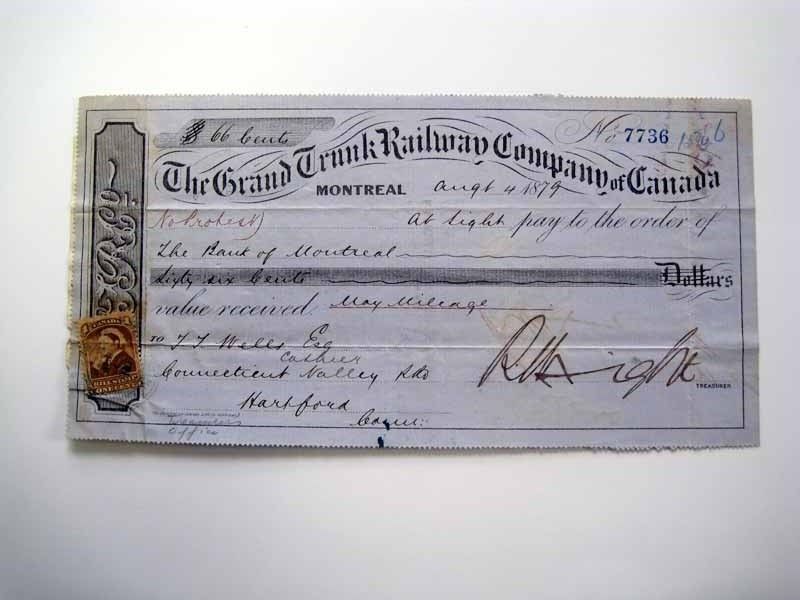 $ 66 Cents
No 7736
The Grand Trunk Railway Company of Canada
MONTREAL Augt 4 1879
No Protest) At sight pay to the order of
The Bank of Montreal
Sixty six Cents Dollars
value received. May Mileage
TO Wells Esq
Cashier
Connecticut Valley
Hartford
Conn:
R Wright
TREASURER
G.T.R.Co.
CANADA
BILL STAMP
ONE CENT
Office